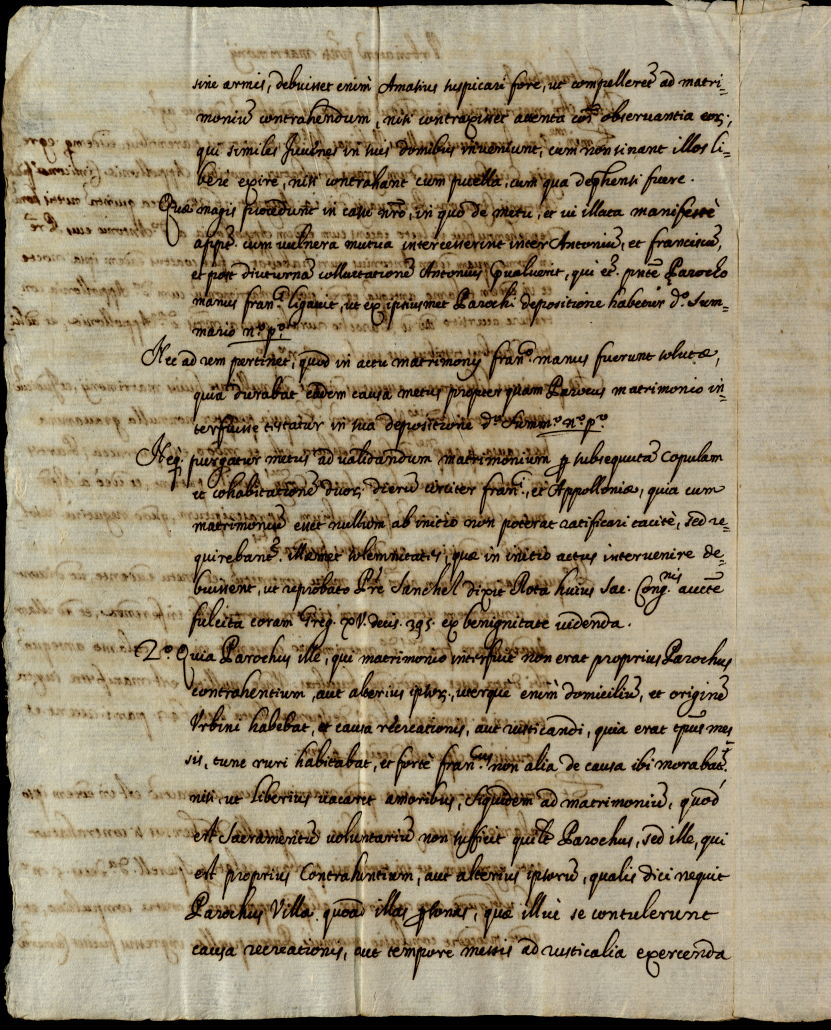 sine armis, debuisset enim Amasius suspicari fore, ut compelleret̃ ad matri=
moniũ contrahendum, nisi contraxisset attenta cõi observantia eor̃,
qui similes Juvenes in suis domibus inveniunt, cum non sinant illos li=
berè exire, nisi contrahant cum puella, cum qua dep̃hensi fuere.
Quæ magis procedunt in casu nr̃o, in quo de metu, et vi illata manifestè
appt. cum vulnera mutua intercesserint inter Antoniũ, et Franciscũ,
et post diuturnã colluctationẽ Antonius p̃valuerit, qui et̃. pñte Parocho
manus Franci. ligavit, ut ex ipsiusmet Parochi depositione habetur do. Sum=
mario no. po.
Nec ad rem pertinet, quod in actu matrimonij Franci. manus fuerunt solutæ,
quia durabat eadem causa metus propter quam Parocus matrimonio in=
terfuisse testatur in sua depositione do. Summo. no. po.
Neq; purgatur metus ad validandum matrimonium p̱ subsequutã copulam
et cohabitationẽ duor̃; dierũ circiter Franci., et Appolloniæ, quia cum
matrimoniũ esset nullum ab initio non poterat ratificari tacitè, sed re=
quirebant̃. illæmet solemnitates, quæ in initio actus intervenire de=
buissent, ut reprobato Pr̃e Sanchel dixit Rota huius Sac. Congnis. aucte
fulcita coram Greg. XV. decis. 395. ex benignitate videnda.
2o. Quia Parochus ille, qui matrimonio interfuit non erat proprius Parochus
contrahentium, aut alterius ipsor̃; uterque enim domiciliũ, et originẽ
Urbini habebat, et causa recreationis, aut rusticandi, quia erat tpus mes=
sis, tunc ruri habitabat, et fortè Francus non alia de causa ibi morabat̃.
nisi ut liberius vacaret amoribus, siquidem ad matrimoniũ, quod
est Sacramentũ voluntariũ non sufficit quilt. Parochus, sed ille, qui
est proprius Contrahentium, aut alterius ipsorũ, qualis dici nequit
Parochus Villæ quoad illas p̱sonas, quæ illuc se contulerunt
causa recreationis, aut tempore messis ad rusticalia exercenda